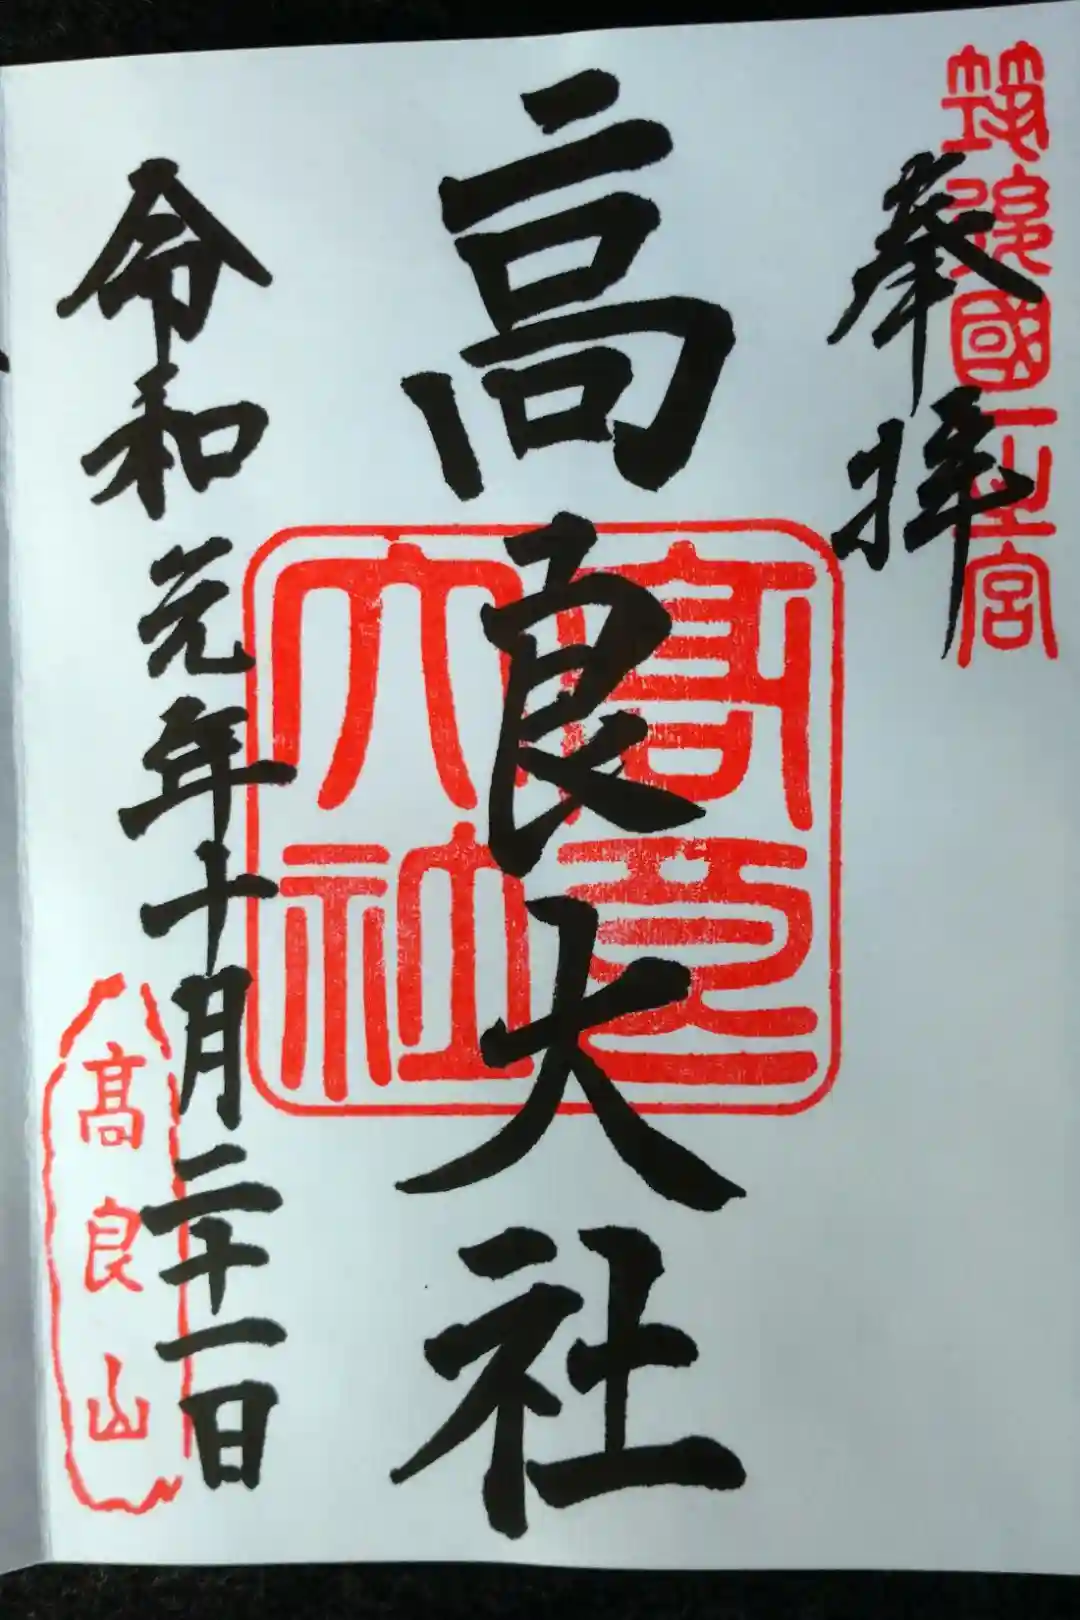 筑後國一之宮
奉拝
高良大社
高良大社
令和元年十月二十一日
高良山